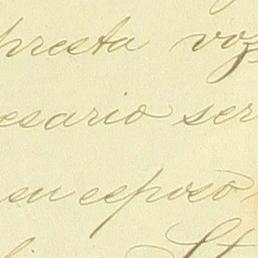 presta voz
esario ser
su esposo